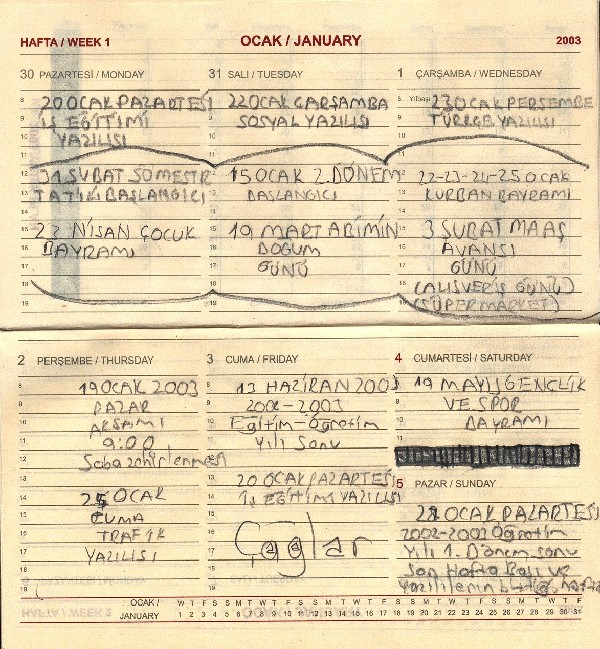 HAFTA / WEEK 1
OCAK / JANUARY
2003
30 PAZARTESİ / MONDAY
20 OCAK PAZARTESİ
İŞ EĞİTİMİ
YAZILISI
31 ŞUBAT SÖMESTR
TATİLİ BAŞLANGICI
23 NİSAN ÇOCUK
BAYRAMI
31 SALI / TUESDAY
22 OCAK ÇARŞAMBA
SOSYAL YAZILISI
15 OCAK 2.DÖNEM
BAŞLANGICI
19 MART ABİMİN
DOĞUM
GÜNÜ
1 ÇARŞAMBA / WEDNESDAY
Yılbaşı
23 OCAK PERŞEMBE
TÜRKÇE YAZILISI
22-23-24-25 OCAK
KURBAN BAYRAMI
3 ŞUBAT MAAŞ
AVANSI
GÜNÜ
(ALIŞVERİŞ GÜNÜ)
(SÜPERMARKET)
2 PERŞEMBE / THURSDAY
19 OCAK 2003
PAZAR
AKŞAMI
9:00
Soba zehirlenmesi
25 OCAK
CUMA
TRAFİK
YAZILISI
3 CUMA / FRIDAY
13 HAZİRAN 2003
2002-2003
Eğitim-Öğretim
Yılı Sonu
20 OCAK PAZARTESİ
İŞ EĞİTİMİ YAZILISI
Çağlar
4 CUMARTESİ / SATURDAY
19 MAYIS GENÇLİK
VE SPOR
BAYRAMI
5 PAZAR / SUNDAY
OCAK PAZARTESİ
2002-2003 Öğretim
Yılı 1. Dönem sonu
Son Hafta
yazılılarının
OCAK / JANUARY
W T F S S M T W T F S S M T W T F S S M T W T F S S M T W T F
1 2 3 4 5 6 7 8 9 10 11 12 13 14 15 16 17 18 19 20 21 22 23 24 25 26 27 28 29 30 31